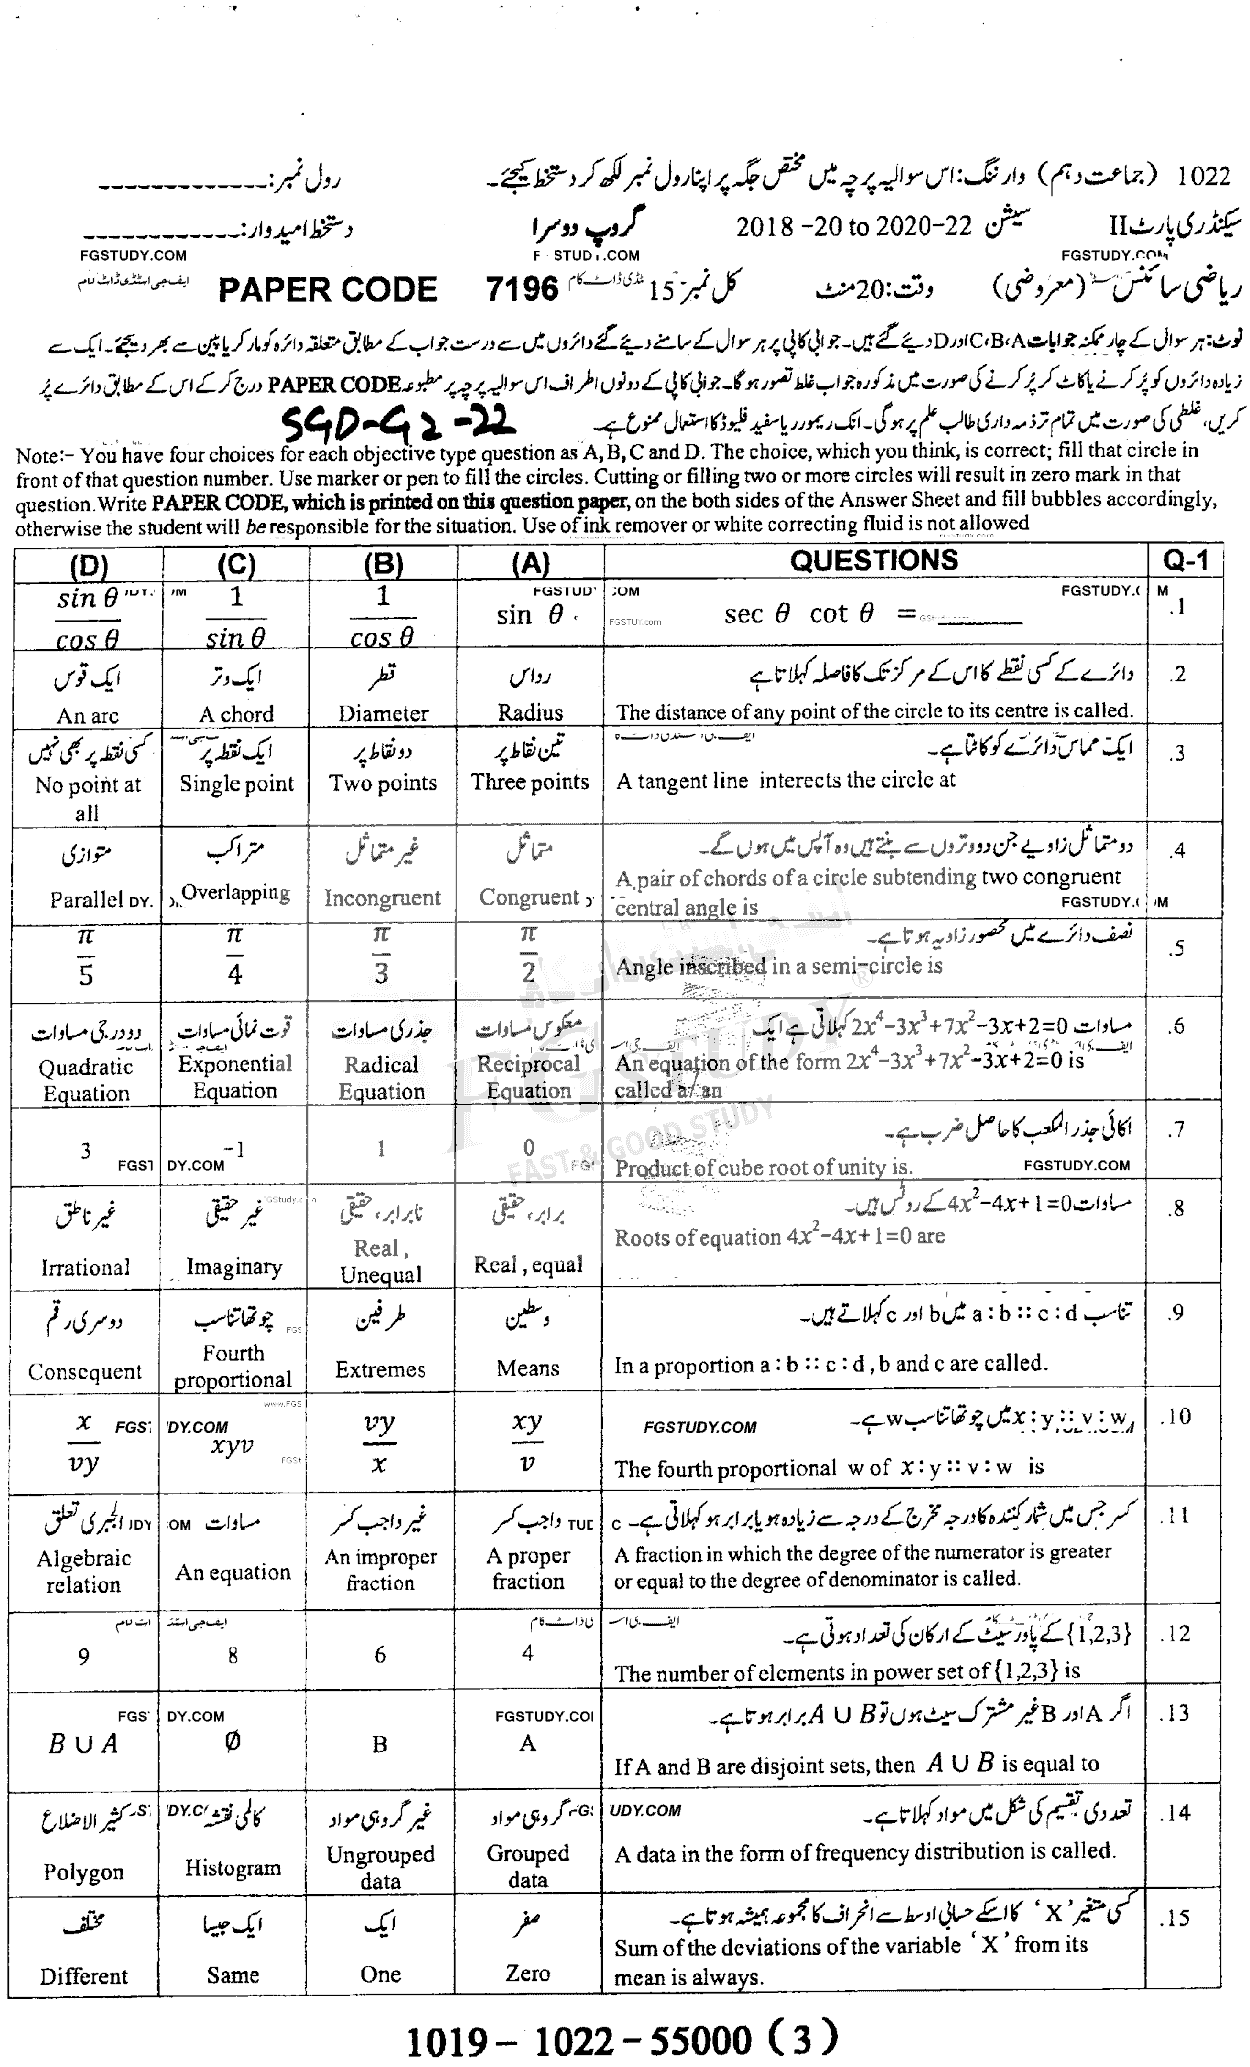 1022 (جماعت دہم) وارننگ: اس سوالیہ پرچہ میں مختص جگہ پر اپنا رول نمبر لکھ کر دستخط کیجئے۔ رول نمبر: _____________
سیکنڈری پارٹ II سیشن 2018 -20 to 2020-22 گروپ دوسرا دستخط امیدوار: _____________
FGSTUDY.COM
ریاضی سائنس (معروضی) وقت: 20 منٹ کل نمبر 15 PAPER CODE 7196
نوٹ: ہر سوال کے چار ممکنہ جوابات C، B، A اور D دیئے گئے ہیں۔ جوابی کاپی پر ہر سوال کے سامنے دیئے گئے دائروں میں سے درست جواب کے مطابق متعلقہ دائرہ کو مارکر یا پین سے بھر دیجئے۔ ایک سے
زیادہ دائروں کو پُر کرنے یا کاٹ کر پُر کرنے کی صورت میں مذکورہ جواب غلط تصور ہوگا۔ جوابی کاپی کے دونوں اطراف اس سوالیہ پرچہ پر مطبوعہ PAPER CODE درج کر کے اس کے مطابق دائرے پُر
کریں، غلطی کی صورت میں تمام تر ذمہ داری طالب علم پر ہوگی۔ انک ریموور یا سفید فلیوڈ کا استعمال ممنوع ہے۔
SGD-G2-22
Note:- You have four choices for each objective type question as A, B, C and D. The choice, which you think, is correct; fill that circle in
front of that question number. Use marker or pen to fill the circles. Cutting or filling two or more circles will result in zero mark in that
question. Write PAPER CODE, which is printed on this question paper, on the both sides of the Answer Sheet and fill bubbles accordingly,
otherwise the student will be responsible for the situation. Use of ink remover or white correcting fluid is not allowed
(D) (C) (B) (A) QUESTIONS Q-1
sin θ / cos θ 1 / sin θ 1 / cos θ sin θ sec θ cot θ = ______ .1
ایک قوس ایک وتر قطر رداس دائرے کے کسی نقطے کا اس کے مرکز تک کا فاصلہ کہلاتا ہے .2
An arc A chord Diameter Radius The distance of any point of the circle to its centre is called.
کسی نقطہ پر بھی نہیں ایک نقطہ پر دو نقاط پر تین نقاط پر ایک مماس دائرے کو کاٹتا ہے۔ .3
No point at all Single point Two points Three points A tangent line interects the circle at
متوازی متراکب غیر متماثل متماثل دو متماثل زاویے جن دو وتروں سے بنتے ہیں وہ آپس میں ہوں گے۔ .4
Parallel Overlapping Incongruent Congruent A pair of chords of a circle subtending two congruent
central angle is
نصف دائرے میں محصور زاویہ ہوتا ہے۔ .5
π/5 π/4 π/3 π/2 Angle inscribed in a semi-circle is
دو درجی مساوات قوت نمائی مساوات جذری مساوات معکوس مساوات مساوات 2x⁴-3x³+7x²-3x+2=0 کہلاتی ہے ایک .6
Quadratic Equation Exponential Equation Radical Equation Reciprocal Equation An equation of the form 2x⁴-3x³+7x²-3x+2=0 is
called a/ an
اکائی جذر المکعب کا حاصل ضرب ہے۔ .7
3 -1 1 0 Product of cube root of unity is.
غیر ناطق غیر حقیقی نابرابر، حقیقی برابر، حقیقی مساوات 4x²-4x+1=0 کے روٹس ہیں۔ .8
Irrational Imaginary Real, Unequal Real, equal Roots of equation 4x²-4x+1=0 are
دوسری رقم چوتھا تناسب طرفین وسطین تناسب a : b :: c : d میں b اور c کہلاتے ہیں۔ .9
Consequent Fourth proportional Extremes Means In a proportion a : b :: c : d, b and c are called.
x : y :: v : w میں چوتھا تناسب w ہے۔ .10
x/vy xyv vy/x xy/v The fourth proportional w of x : y :: v : w is
الجبری تعلق مساوات غیر واجب کسر واجب کسر کسر جس میں شمار کنندہ کا درجہ مخرج کے درجہ سے زیادہ ہو یا برابر ہو کہلاتی ہے۔ .11
Algebraic relation An equation An improper fraction A proper fraction A fraction in which the degree of the numerator is greater
or equal to the degree of denominator is called.
{1,2,3} کے پاور سیٹ کے ارکان کی تعداد ہوتی ہے۔ .12
9 8 6 4 The number of elements in power set of {1,2,3} is
اگر A اور B غیر مشترک سیٹ ہوں تو A ∪ B برابر ہوتا ہے۔ .13
B ∪ A Ø B A If A and B are disjoint sets, then A ∪ B is equal to
کثیر الاضلاع کالمی نقشہ غیر گروہی مواد گروہی مواد تعددی تقسیم کی شکل میں مواد کہلاتا ہے۔ .14
Polygon Histogram Ungrouped data Grouped data A data in the form of frequency distribution is called.
مختلف ایک جیسا ایک صفر کسی متغیر 'X' کا اسکے حسابی اوسط سے انحراف کا مجموعہ ہمیشہ ہوتا ہے۔ .15
Different Same One Zero Sum of the deviations of the variable 'X' from its
mean is always.
FGSTUDY
FAST & GOOD STUDY
1019 - 1022 - 55000 (3)